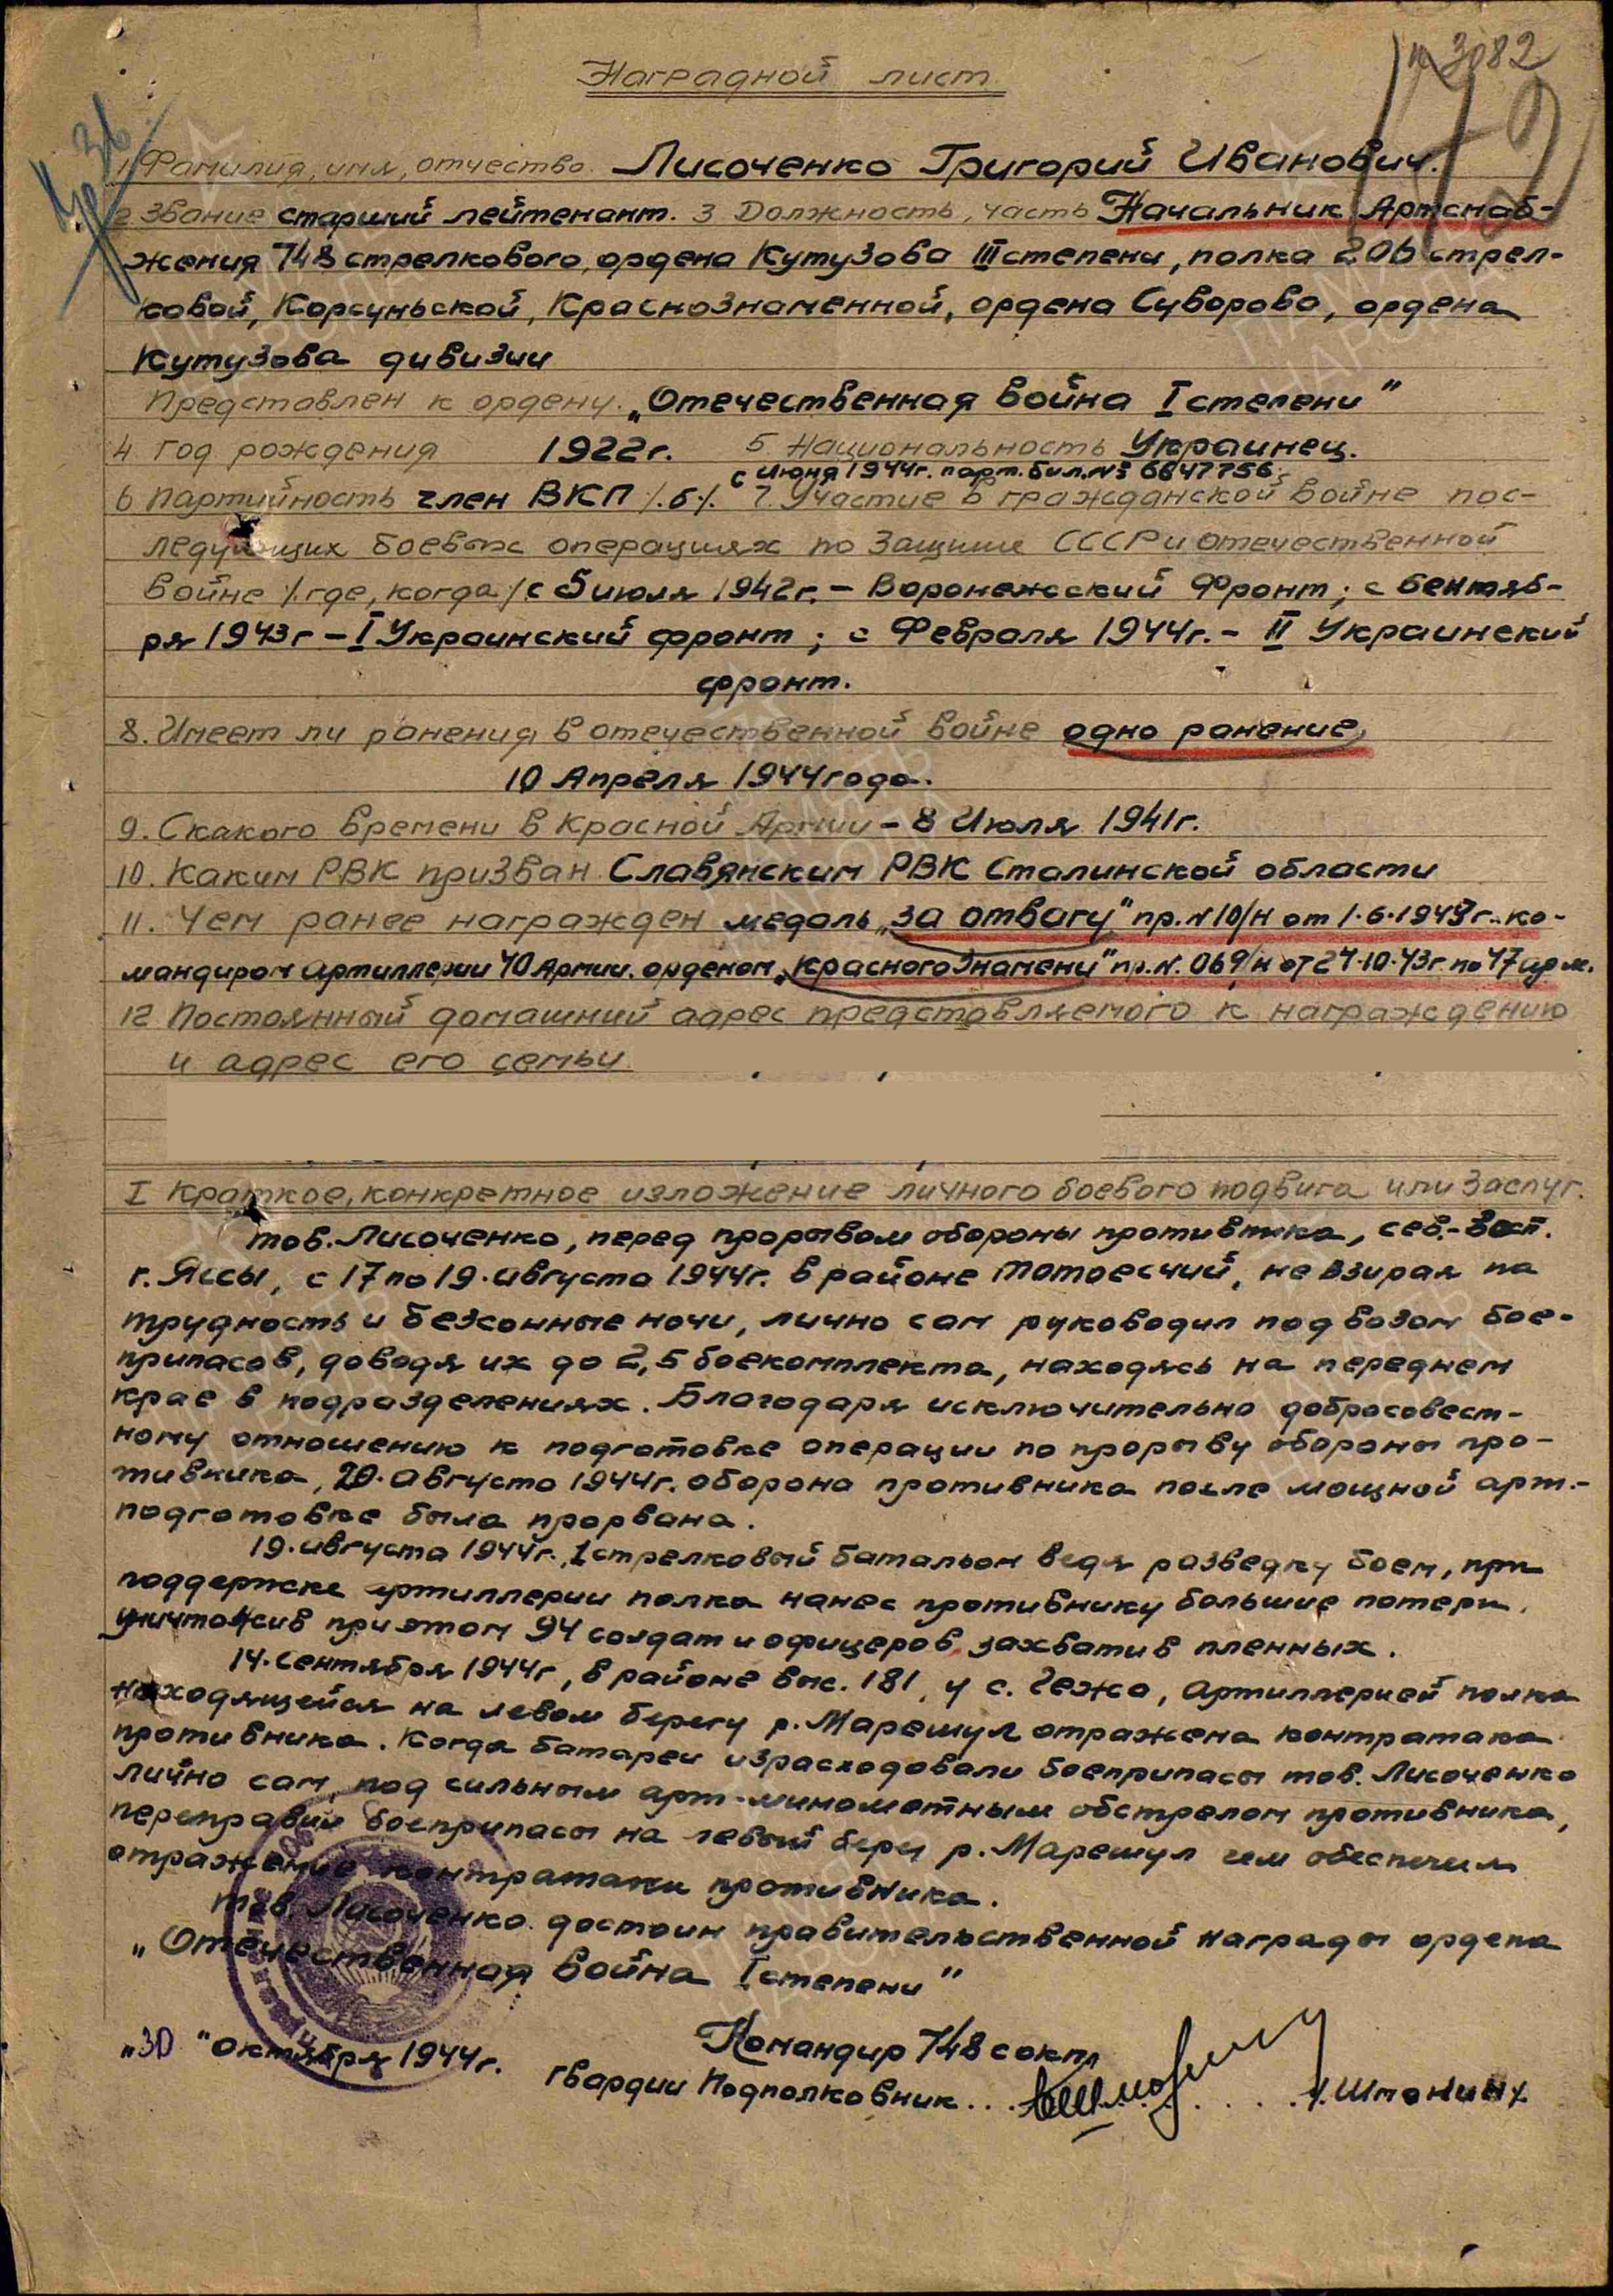 п 3082
Наградной лист
1. Фамилия, имя, отчество. Лисоченко Григорий Иванович.
2 Звание старший лейтенант. 3 Должность, часть Начальник Артснаб-
жения 748 стрелкового, ордена Кутузова III степени, полка 206 стрел-
ковой, Корсуньской, Краснознаменной, ордена Суворова, ордена
Кутузова дивизии
Представлен к ордену. „Отечественная война I степени"
4 Год рождения 1922г. 5 Национальность Украинец.
с июня 1944г. парт. бил. № 6647756.
6 Партийность член ВКП /.б/. 7. Участие в гражданской войне пос-
ледующих боевых операциях по защите СССР и отечественной
войне /.где, когда/ с 5 июля 1942г. - Воронежский Фронт; с сентяб-
ря 1943г - I Украинский фронт; с Февраля 1944г. - II Украинский
фронт.
8. Имеет ли ранения в отечественной войне одно ранение,
10 Апреля 1944 года.
9. Скакого времени в Красной Армии - 8 Июля 1941г.
10. Каким РВК призван Славянским РВК Сталинской области
11. Чем ранее награжден медаль „за отвагу" пр. № 10/н от 1.6.1943г. ко-
мандиром Артиллерии 40 Армии. орденом „Красного Знамени" пр. №. 069/н от 24.10.43г. по 47 арм.
12 Постоянный домашний адрес представляемого к награждению
и адрес его семьи
I Краткое, конкретное изложение личного боевого подвига или заслуг.
тов. Лисоченко, перед прорывом обороны противника, сев.-вост.
г. Яссы, с 17 по 19. августа 1944г. в районе Тотоесчий, не взирая на
трудность и безсонные ночи, лично сам руководил подвозом бое-
припасов, доводя их до 2,5 боекомплекта, находясь на переднем
крае в подразделениях. Благодаря исключительно добросовест-
ному отношению к подготовке операции по прорыву обороны про-
тивника, 20. августа 1944г. оборона противника после мощной арт.-
подготовке была прорвана.
19. августа 1944г., 1 стрелковый батальон ведя разведку боем, при
поддержке артиллерии полка нанес противнику большие потери,
уничтожив при этом 94 солдат и офицеров, захватив пленных.
14. сентября 1944г, в районе выс. 181, у с. Чежа, Артиллерией полка
находящейся на левом берегу р. Марешул отражена контратака
противника. Когда батареи израсходовали боеприпасы тов. Лисоченко
лично сам, под сильным арт-минометным обстрелом противника,
переправил боеприпасы на левый берег р. Марешул чем обеспечил
отражение контратаки противника.
тов. Лисоченко. достоин правительственной награды ордена
„Отечественная война I степени"
„30 " октября 1944г. Командир 748 сокп
гвардии Подполковник . . . /.Шпанин/.